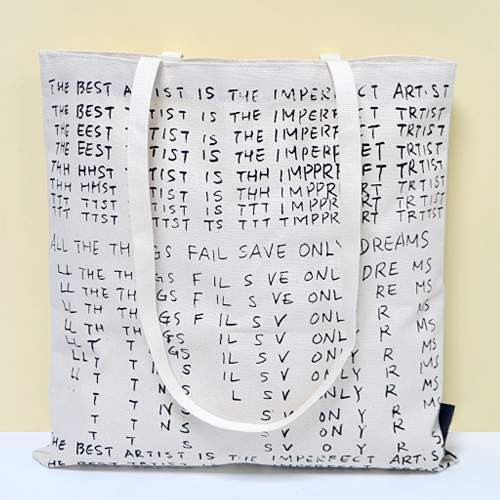 THE BEST A TIST IS THE IMPERFECT ARTIST
THE BEST TIST IS THE IMPERF T TRTIST
THE EEST TIST IS THE IMPERF T TRTIST
THE EEST TIST IS THE IMPERF T TRTIST
THH HHST TIST IS THH IMPPRF T TRTIST
THH HHST TIST IS THH IMPPR RT TRTIST
TTT TTST TIST IS TTT IMPPR RT TRTIST
TTT TTST TTST TS TTT TMPPR RT TRTTST
ALL THE TH GS FAIL SAVE ONLY DREAMS
LL THE TH GS F IL S VE ONL DRE MS
LL THE TH GS F IL S VE ONL RE MS
LL TH TH GS F IL S V ONL R MS
LL TH T GS IL S V ONL R MS
LL T T GS IL S V ONLY R MS
LL T T N S IL S V ONLY R MS
T T N S L S V ONLY R MS
T T N S S V ONY R
T T S SV O Y R S
HE BEST ARTIST IS THE IMPERFECT ARTIS